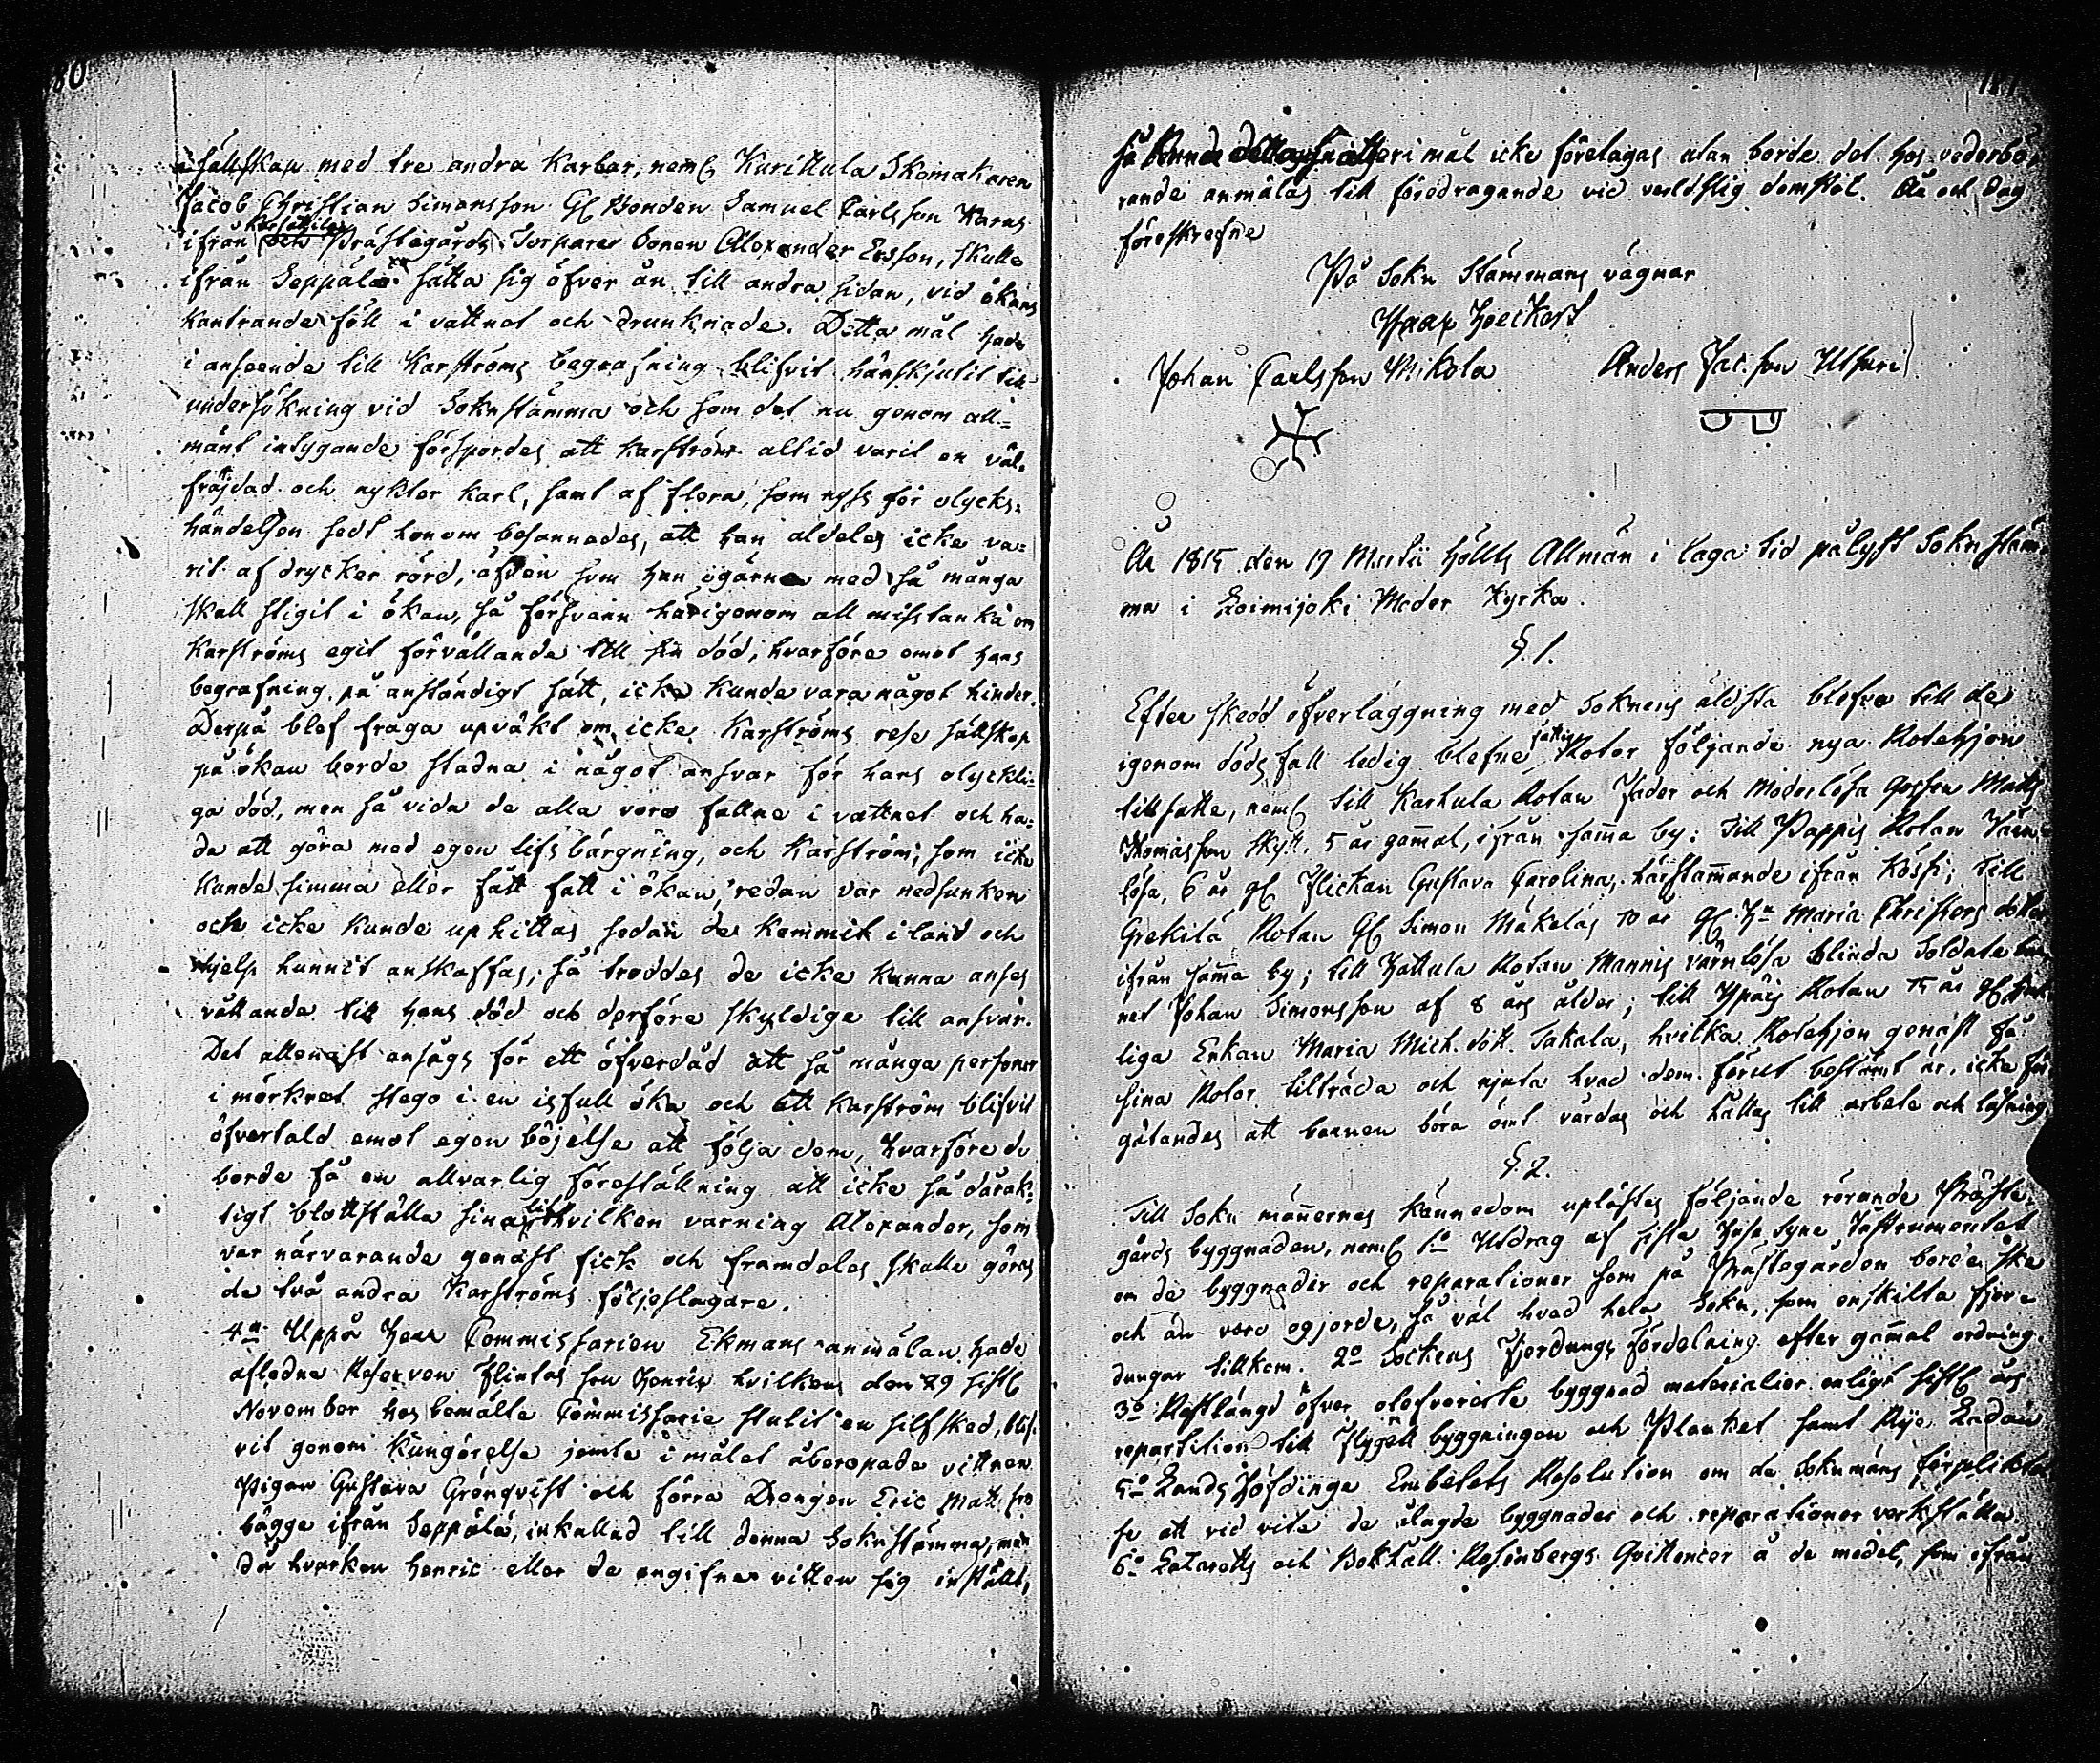 80
i sällskap med tre andra Karlar, neml Kurittula Skomakaren
Jacob Christian Simonsson Gl Bonden Samuel Carlsson Karus
ifrån och Prästegårds Torpare Sonen Alexander Ersson, skulle
ifrån Seppälä sätta sig öfver ån till andra sidan, vid ökans
kantrande föll i vattnet och drunknade. Detta mål hade
i anseende till Karströms begrafning blifvit hänskjutit till
undersökning vid Soknstämma och som det nu genom all=
mänt intygande förspordes att Karström altid varit en väl=
fräjdad och nykter Karl, samt af flera, som nyss för olycks=
händelsen sedt honom besannades, att han aldeles icke va=
rit af drycker rörd, äfven som han ogärna med så många
skall stigit i ökan, så försvann härigenom all misstanka om
Karströms egit förvållande till sin död; hvarföre emot hans
begrafning på anständigt sätt, icke kunde vara något hinder.
Derpå blef fraga upväkt om icke Karströms rese sällskap
på ökan borde stadna i något ansvar för hans olyckli=
ga död, men så vida de alla voro fallne i vattnet och ha=
de att göra med egen lifsbärgning, och Karström, som icke
kunde simma eller fått fatt i ökan, redan var nedsunken
och icke kunde uphittas sedan de kommit i land och
hjelp hunnit anskaffas; så troddes de icke kunna anses
vållande till hans död och derföre skyldige till ansvar.
Det allenast ansågs för ett öfverdåd att så många personer
i mörkret stego i en isfull öka och att Karström blifvit
öfvertald emot egen böjelse att följa dem, hvarföre de
borde få en allvarlig föreställning att icke så dårak=
tigt blottställa sina lif hvilken varning Alexander, som
var närvarande genast fick och framdeles skulle göras
de två andra Karströms följeslagare.
4. Uppå Herr Commissarien Ekmans anmälan hade
afledne Reserven Flintas son Henric hvilken den 29 sistl
November hos bemälte Commissarie stulit en silfsked, blif=
vit genom Kungörelse jemte i målet åberopade vittnen
Pigan Gustava Grönqvist och förra Drengen Eric Matsson
bägge ifrån Seppälä, inkallad till denna Soknstämma, men
då hvarken Henric eller de angifne vitten sig instält,
så kunde detta Snatteri mål icke företagas utan borde det hos vederbö=
rande anmälas till föredragande vid verldslig domstol. År och Dag
föreskrefne
På Sokn Stämmans vägnar
Isaac Hoeckert
Johan Carlsson Mikola Anders Jac:son Uttari
År 1815 den 19 Martii hölts Allmän i Laga tid pålyst Soknstäm=
ma i Loimijoki Moder Kyrka.
§. 1.
Efter skedd öfverläggning med Soknens äldsta blefvo till de
igenom dödsfall ledig blefne Rotor följande nya Rotehjon
tillsatte, neml till Karhula Rotan Fader och Moderlösa Gossen Matts
Thomasson Skytt, 5 år gammal, ifrån samma by: Till Pappis Rotan Värn=
lösa, 6 år gl Flickan Gustava Carolina, härstammande ifrån Kössi; till
Grekilä Rotan Gl Simon Mäkeläs 70 år gl Hu Maria Christers dotter
ifrån samma by; till Hattula Rotan Mannis värnlösa blinda Soldate bar=
net Johan Simonsson af 8 års ålder; till Ypäis Rotan 75 år gl
liga Enkan Maria Mich. dott. Takala, hvilka Rotehjon genast få
sina Rotor tillträda och njuta hvad dem förut bestämt är, icke för
gätandes att barnen böra ömt vårdas och hållas till arbete och läsning.
§. 2.
Till Sokn männernas kännedom uplästes följande rörande Präste=
gårds byggnaden, neml 1o Utdrag af sista Huse Syne Instrumentet
om de byggnader och reparationer som på Prästegården borde ske
och än voro ogjorde, så väl hvad hela Sokn, som enskilta fjer=
dungar tillkom. 2o Sockens Fjerdungs fördelning efter gammal ordning.
3o Restlängd öfver olefvererte byggnad materialier enligt sistl års
repartition till Flygell byggningen och Planket samt Nya Ladan
5o Lands Höfdinge Embetets Resolution om de Soknmäns förplikta
se att vid vite de ålagde byggnader och reparationer verkställa.
6o Lazaretts och Bokhåll. Rosenbergs Qvittencer å de medel, som ifrån